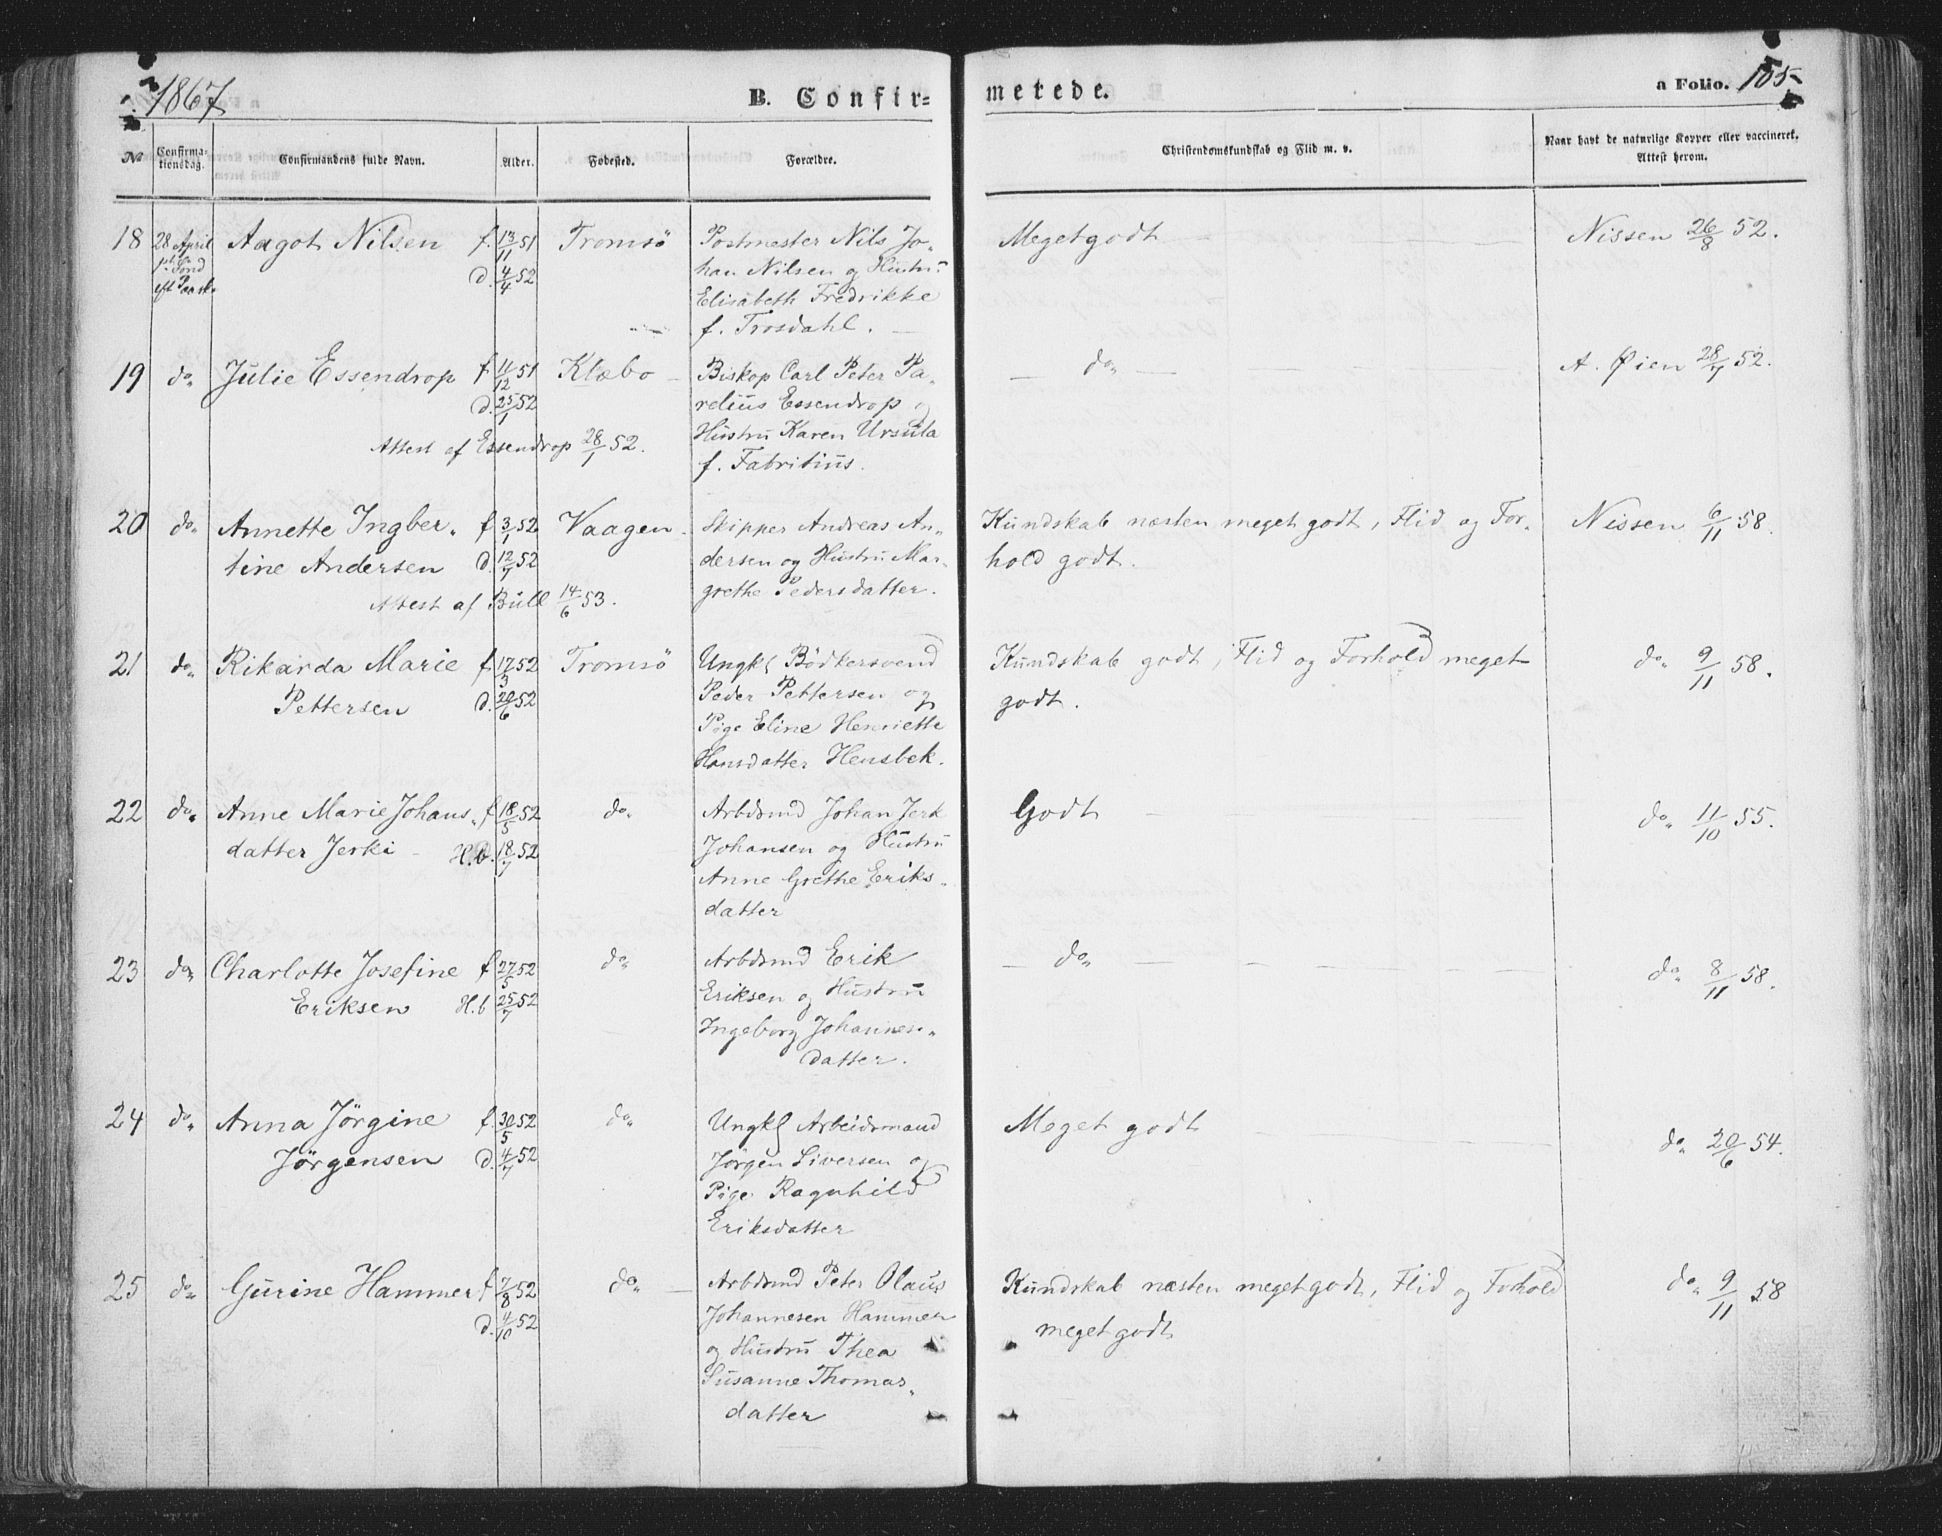 1867 B. Confir= metede. a Folio. 155
No Confirma-tionsdag. Confirmandens fulde Navn. Alder. Fødested. Forældre. Christendomskundskab og Flid m. v. Naar havt de naturlige Kopper eller vaccineret. Attest herom.
18 28 April Aagot Nilsen f. 13/11 51 Tromsö Postmester Nils Jo- Meget godt Nissen 26/8 52.
d. 4/4 52 han Nilsen og Hustru
eft Paask. Elisabeth Fredrikke
f. Trosdahl.
19 do Julie Essendrop f 11/12 51 Klæbo Biskop Carl Peter Pa- do A. Øien 28/7 52.
d. 25/1 52 relius Essendrop og
Attest af Essendrop 28/1 52. Hustru Karen Ursula
f. Fabritius.
20 do Annette Ingber- f 3/1 52 Vaagen Skipper Andreas An- Kundskab næsten meget godt, Flid og For- Nissen 6/11 58.
tine Andersen d. 12/7 52 dersen og Hustru Mar- hold godt.
Attest af Bull 14/6 53. grethe Pedersdatter.
21 do Rikarda Marie f 17/5 52 Tromsö Ungkl Bödkersvend Kundskab godt, Flid og Forhold meget do 9/11 58.
Pettersen d. 20/6 52 Peder Pettersen og godt.
Pige Eline Henriette
Hansdatter Hensbek.
22 do Anne Marie Johans- f 18/5 52 do Arbdsmd Johan Jerk Godt do 11/10 55.
datter Jerki H.d. 18/7 52 Johansen og Hustru
Anne Grethe Eriks-
datter
23 do Charlotte Josefine f 27/5 52 do Arbdsmd Erik do do 8/11 58.
Eriksen H.d 25/7 52 Eriksen og Hustru
Ingeborg Johannes-
datter.
24 do Anna Jørgine f. 30/5 52 do Ungkl Arbeidsmand Meget godt do 20/6 54.
Jørgensen d. 4/7 52 Jørgen Siversen og
Pige Ragnhild
Eriksdatter
25 do Gurine Hammer f 7/8 52 do Arbdsmd Peter Olaus Kundskab næsten meget godt, Flid og Forhold do 9/11 58
d. 4/10 52 Johannesen Hammer meget godt
og Hustru Thea
Susanne Thomas-
datter